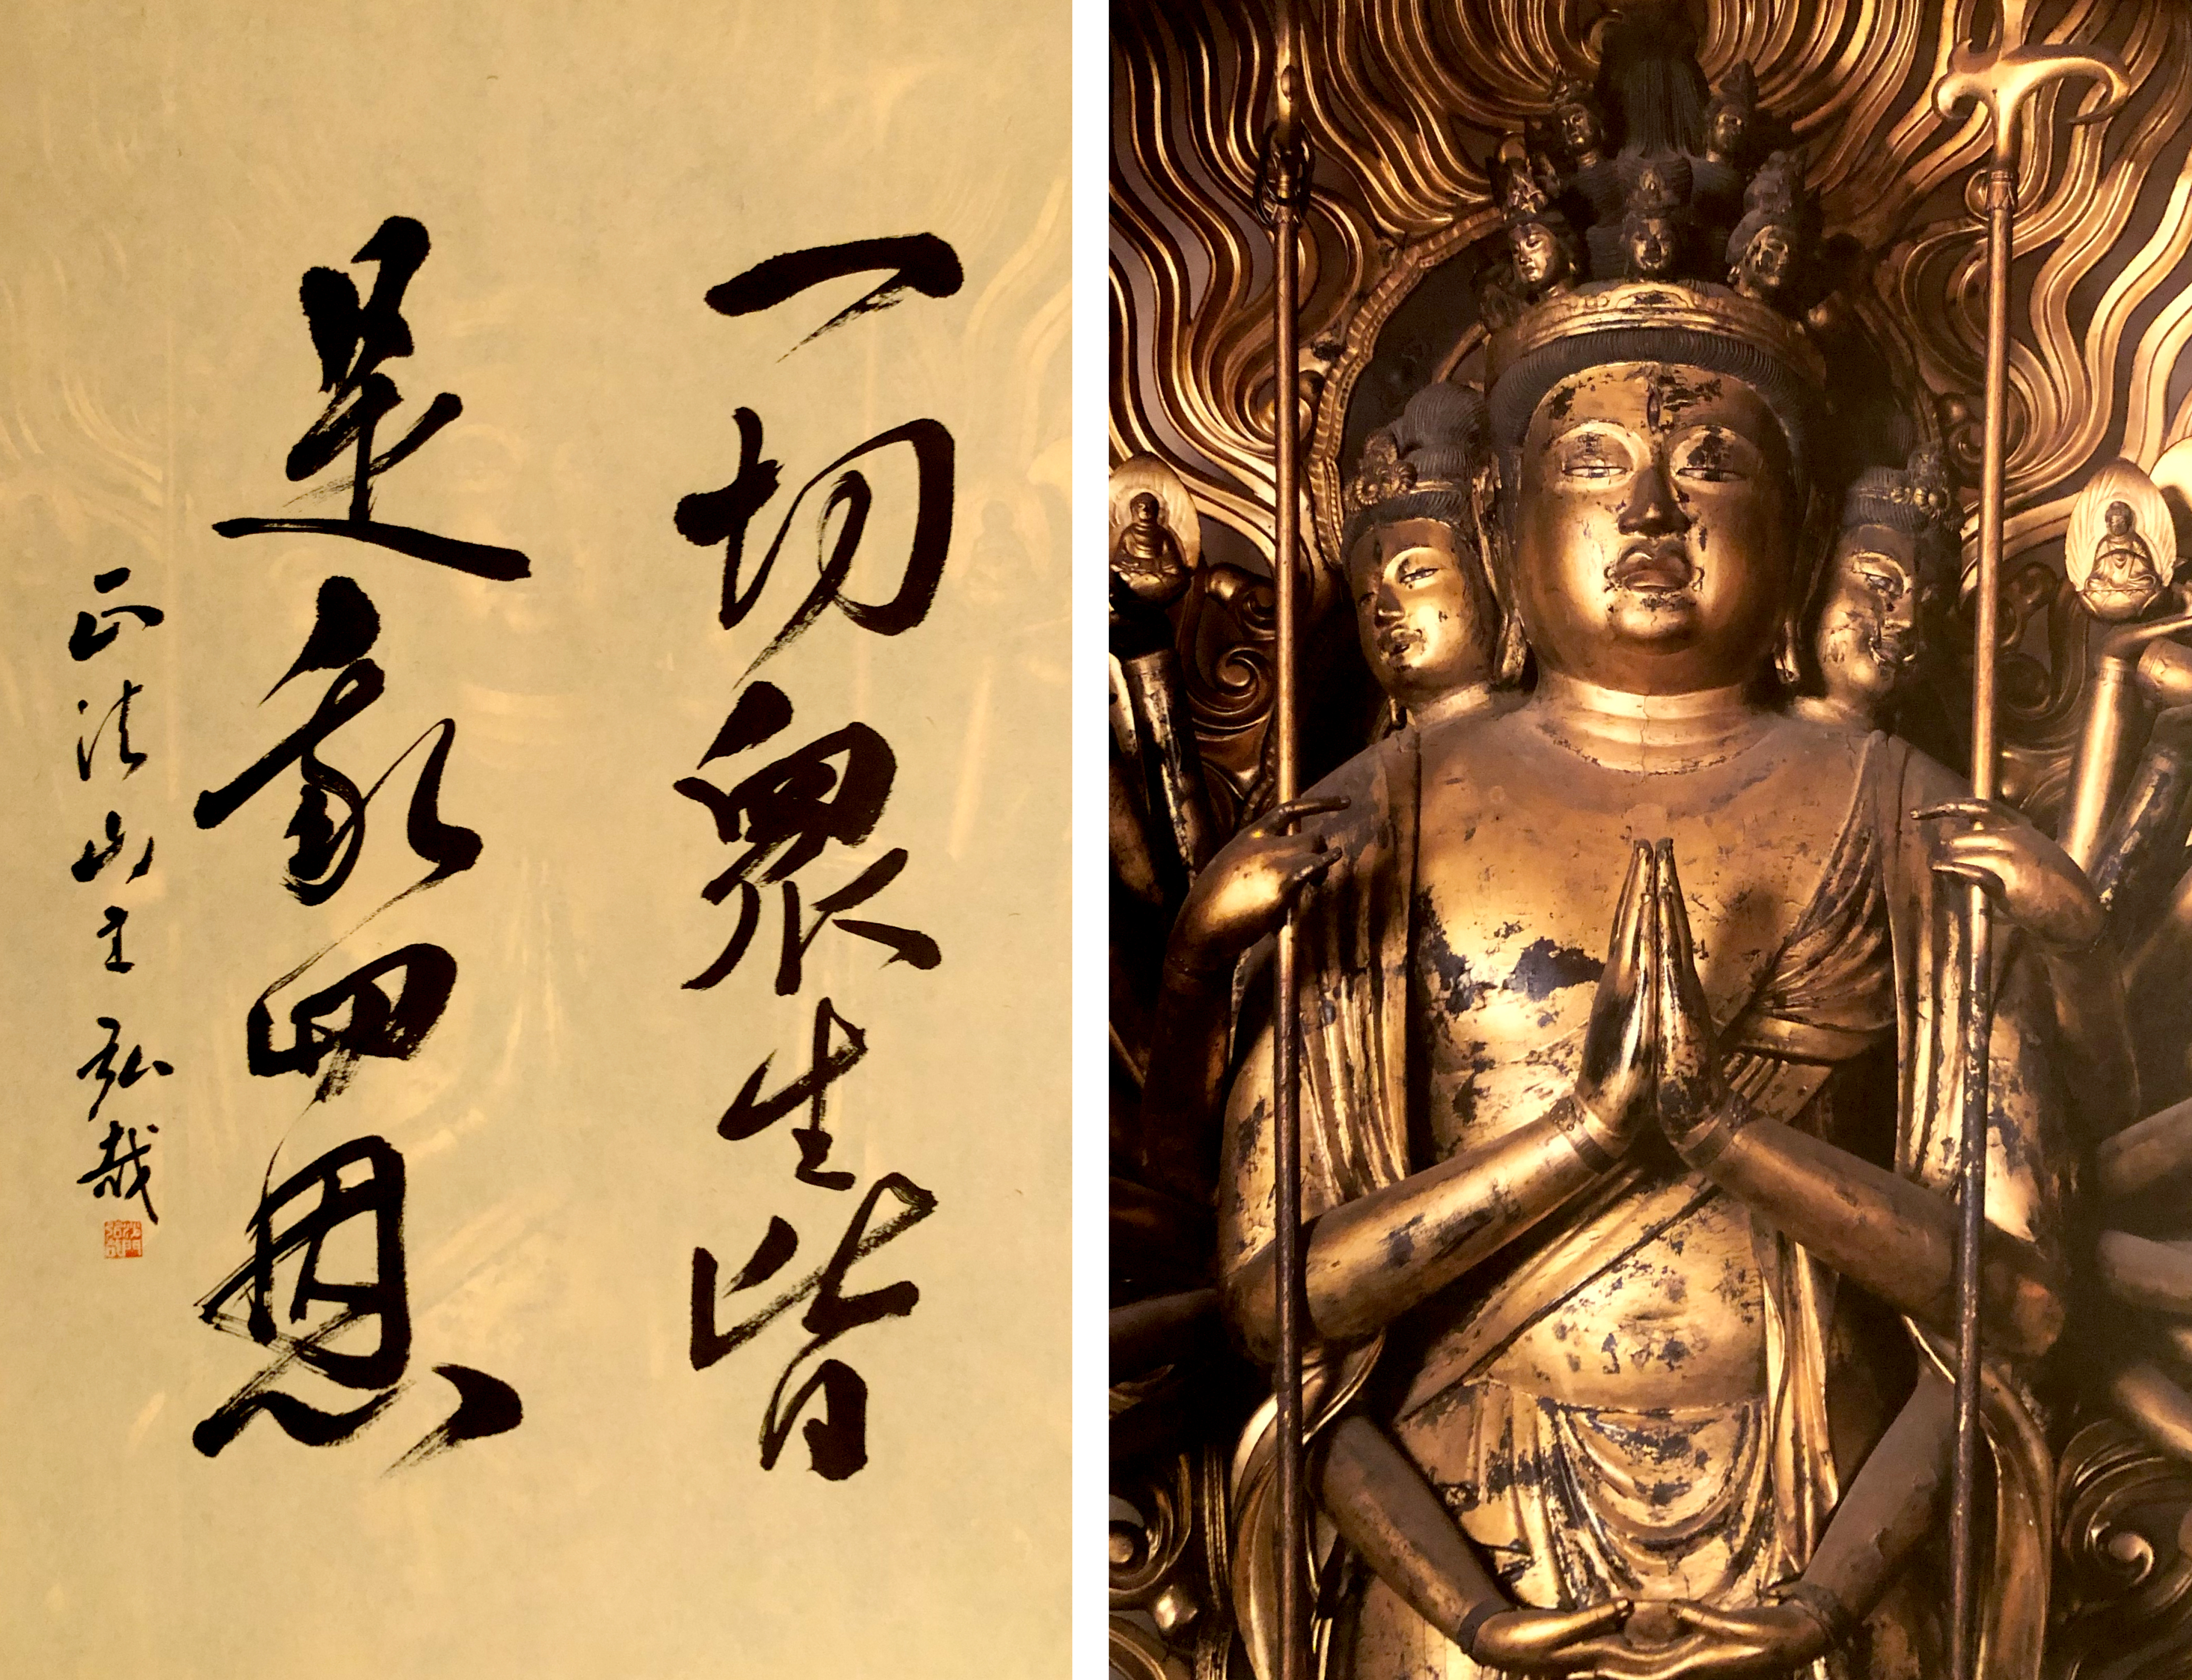 一切衆生皆
是我四恩
正法山主 弘哉